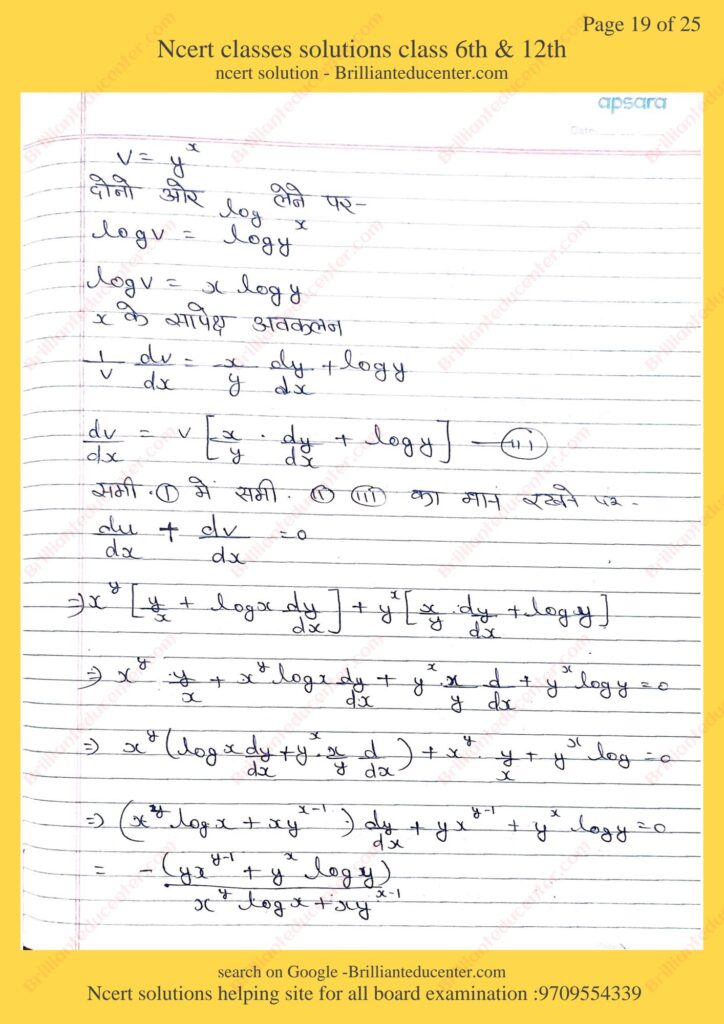 Page 19 of 25
Ncert classes solutions class 6th & 12th
ncert solution - Brillianteducenter.com
apsara
Date
v = y^x
दोनो ओर log लेने पर-
logv = logy^x
logv = x logy
x के सापेक्ष अवकलन
1/v dv/dx = x/y dy/dx + logy
dv/dx = v [x/y . dy/dx + logy] — (iii)
समी. (i) में समी. (ii) (iii) का मान रखने पर-
du/dx + dv/dx = 0
⇒ x^y [y/x + logx dy/dx] + y^x [x/y . dy/dx + logy]
⇒ x^y . y/x + x^y logx dy/dx + y^x . x/y d/dx + y^x logy = 0
⇒ x^y (logx dy/dx + y^x . x/y d/dx) + x^y . y/x + y^x log = 0
⇒ (x^y logx + xy^(x-1) .) dy/dx + yx^(y-1) + y^x logy = 0
= -(yx^(y-1) + y^x logy) / x^y logx + xy^(x-1)
search on Google -Brillianteducenter.com
Ncert solutions helping site for all board examination :9709554339